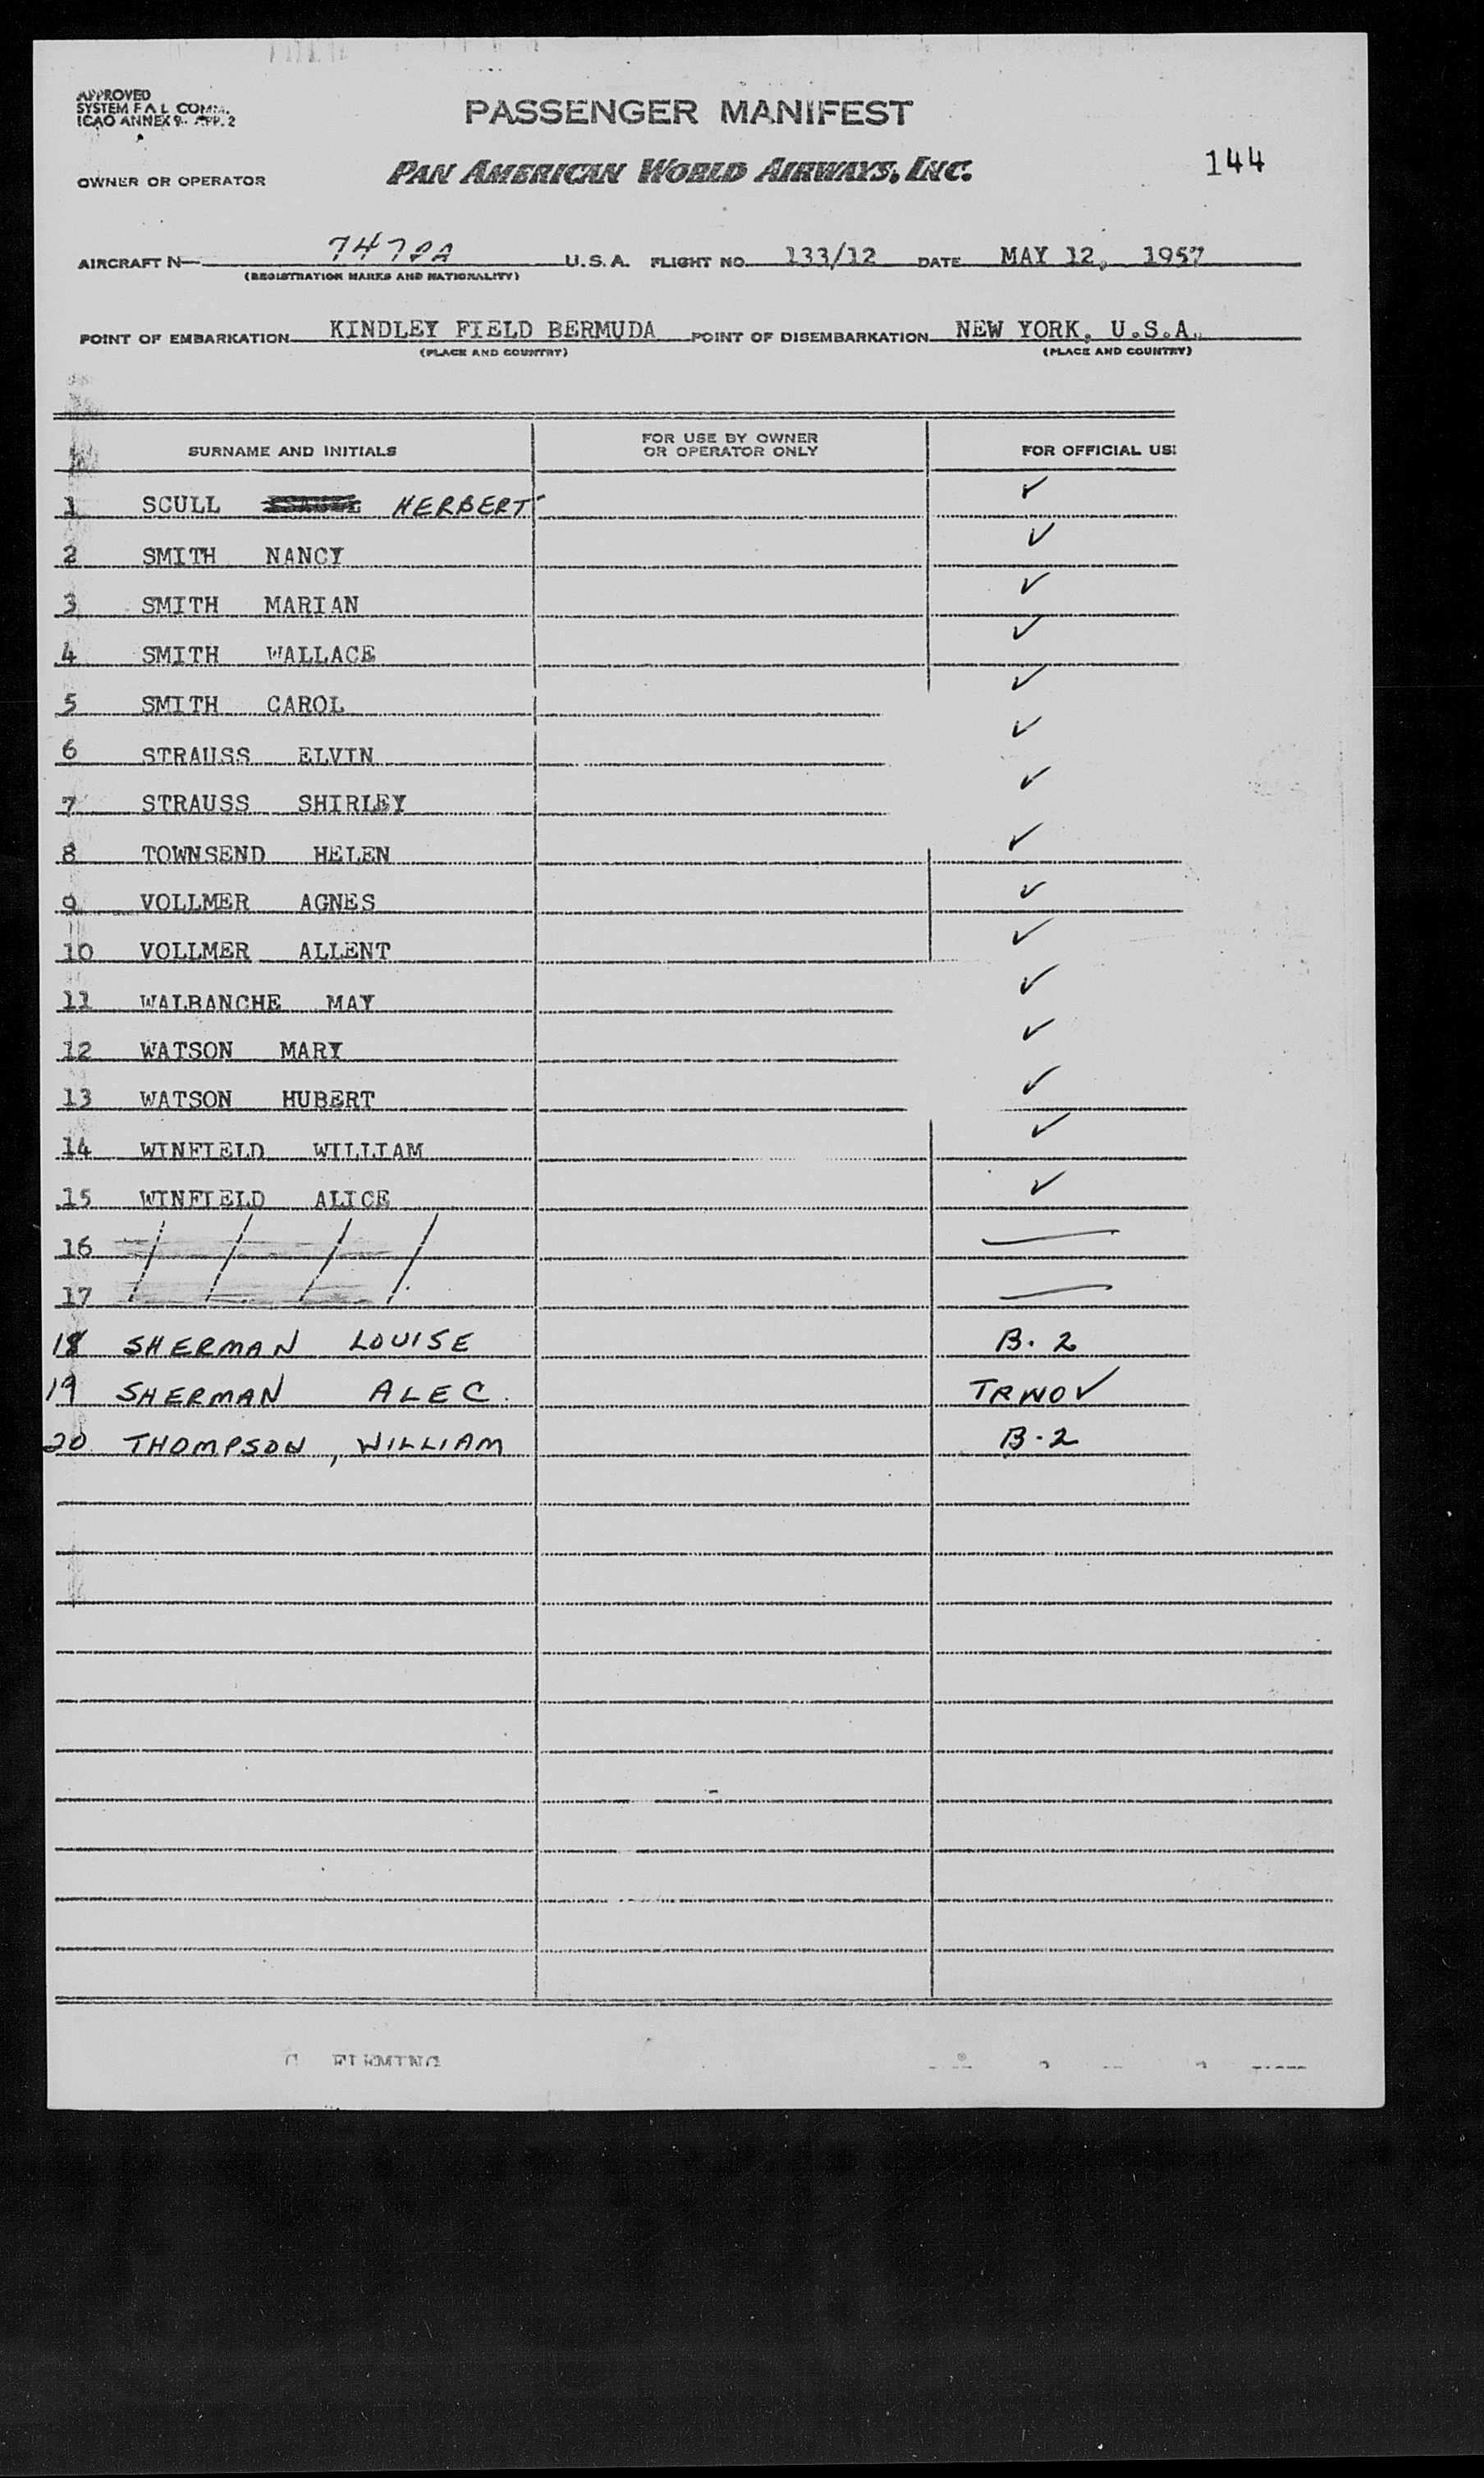 APPROVED
SYSTEM F A L COMM.
ICAO ANNEX 9- APP. 2
PASSENGER MANIFEST
OWNER OR OPERATOR PAN AMERICAN WORLD AIRWAYS, INC. 144
AIRCRAFT N U.S.A. FLIGHT NO. 133/12 DATE MAY 12, 1957
(REGISTRATION MARKS AND NATIONALITY)
POINT OF EMBARKATION KINDLEY FIELD BERMUDA POINT OF DISEMBARKATION NEW YORK, U.S.A.
(PLACE AND COUNTRY) (PLACE AND COUNTRY)
SURNAME AND INITIALS FOR USE BY OWNER OR OPERATOR ONLY FOR OFFICIAL US
1 SCULL HERBERT ✓
2 SMITH NANCY ✓
3 SMITH MARIAN ✓
4 SMITH WALLACE ✓
5 SMITH CAROL ✓
6 STRAUSS ELVIN ✓
7 STRAUSS SHIRLEY ✓
8 TOWNSEND HELEN ✓
9 VOLLMER AGNES ✓
10 VOLLMER ALLENT ✓
11 WALBANCHE MAY ✓
12 WATSON MARY ✓
13 WATSON HUBERT ✓
14 WINFIELD WILLIAM ✓
15 WINFIELD ALICE ✓
16
17
18 SHERMAN LOUISE B.2
19 SHERMAN ALEC. TRWOV
20 THOMPSON, WILLIAM B-2